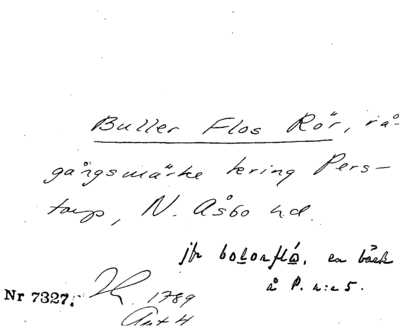 Buller Flos Rör, rå-
gångsmärke kring Pers-
torp, N. Åsbo hd.
jfr boloaflo, en bäck
å P. n:r 5.
Nr 7327. 1789
Akt 4